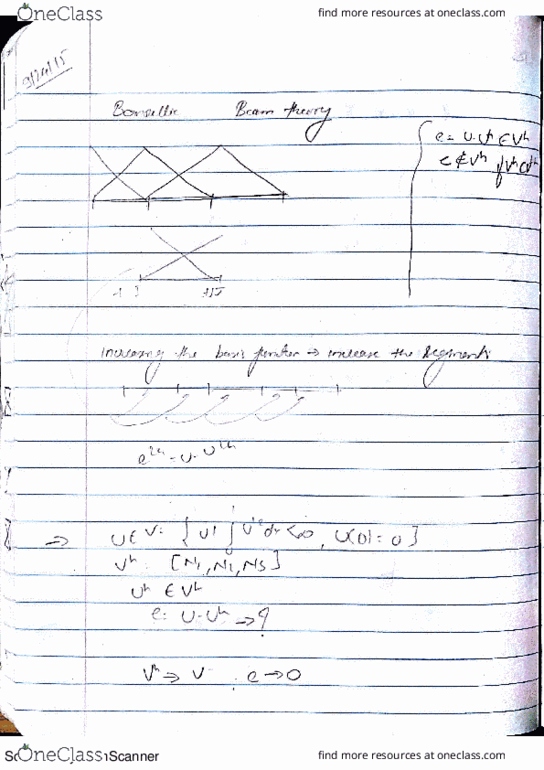 OneClass find more resources at oneclass.com
9/24/15
Beam theory
e = u - uʰ ∈ Vʰ
e ∉ Vʰ if Vʰ ⊂ Vʰ
Increasing the basis function → increase the segments
= u - u
⇒ u ∈ V: { u | ∫ dx < ∞, u(0) = 0 }
Vʰ: [N₁, N₂, N₃]
uʰ ∈ Vʰ
e: u - uʰ → ?
Vʰ → V e → 0
OneClass Scanner find more resources at oneclass.com